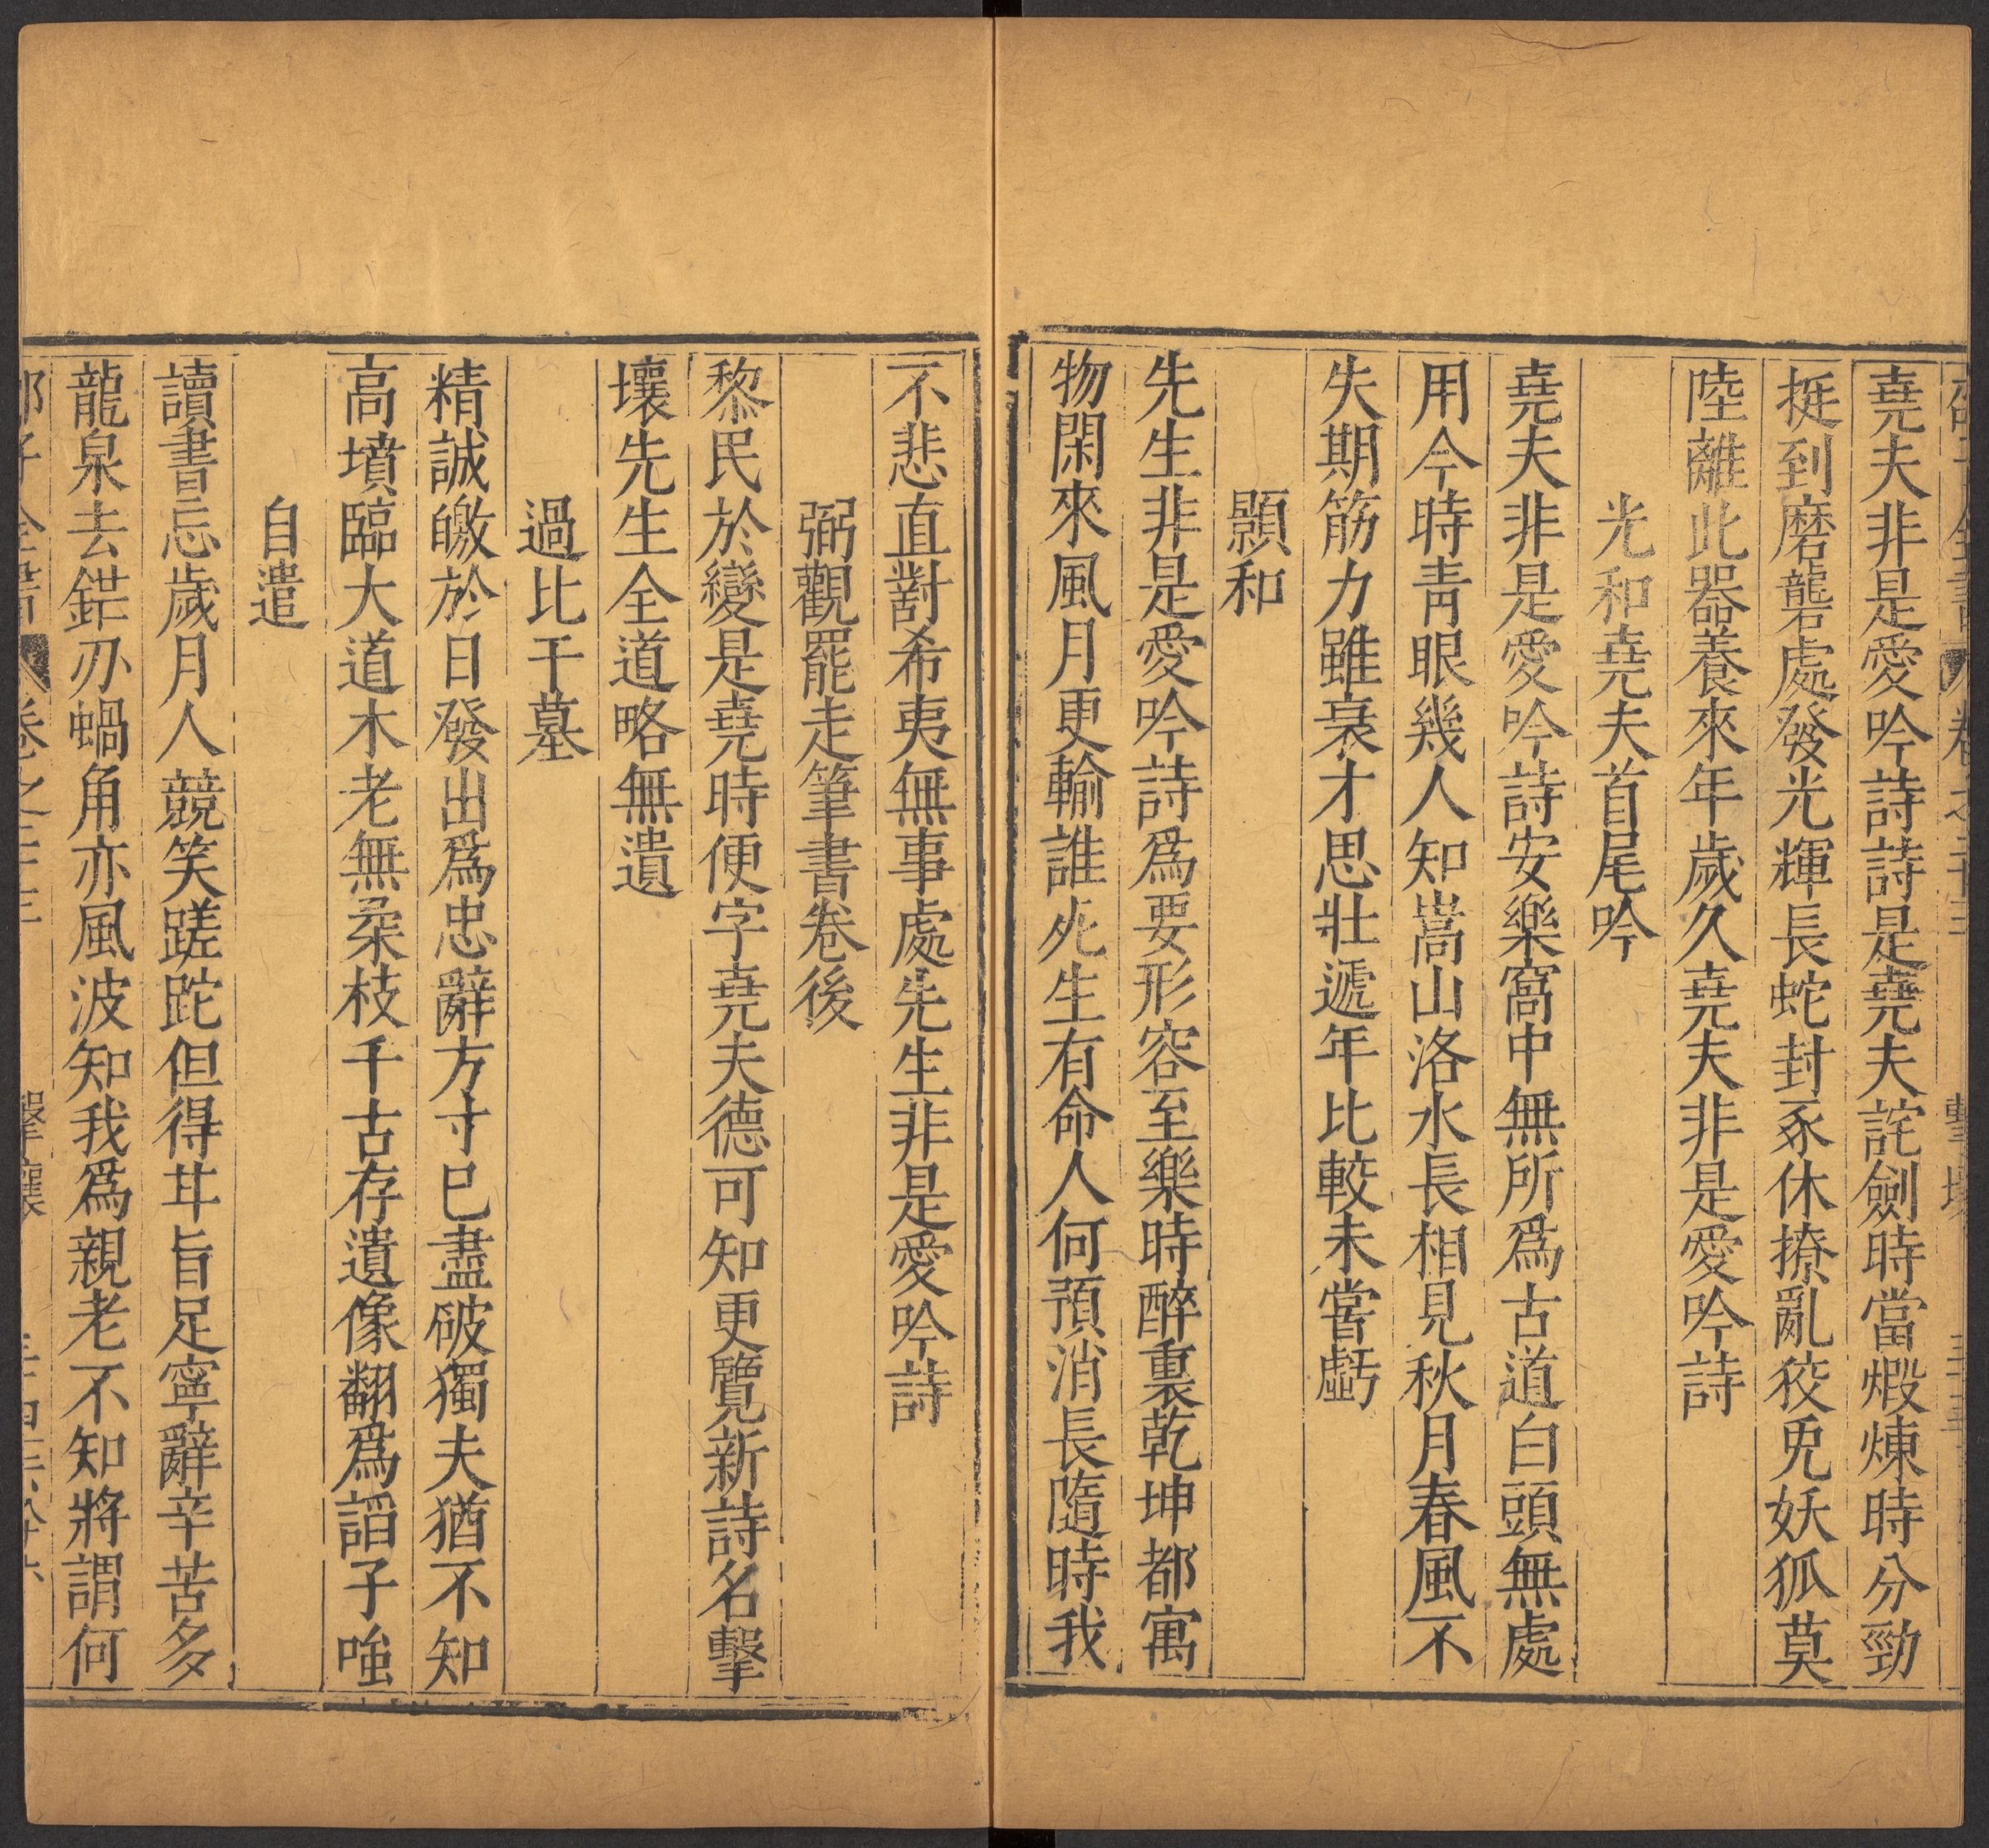 堯夫非是愛吟詩詩是堯夫詫劍時當煅煉時分勁
挺到磨礱處發光輝長蛇封豕休撩亂狡兎妖狐莫
陸離此器養來年歲久堯夫非是愛吟詩
光和堯夫首尾吟
堯夫非是愛吟詩安樂窩中無所爲古道白頭無處
用今時靑眼幾人知嵩山洛水長相見秋月春風不
失期筋力雖衰才思壯遞年比較未嘗虧
顥和
先生非是愛吟詩爲要形容至樂時醉裏乾坤都寓
物閑來風月更輸誰死生有命人何預消長隨時我
不悲直對希夷無事處先生非是愛吟詩
弼觀罷走筆書卷後
黎民於變是堯時便字堯夫德可知更覽新詩名擊
壤先生全道略無遺
過比干墓
精誠皦於日發出爲忠辭方寸巳盡破獨夫猶不知
高墳臨大道木老無柔枝千古存遺像翻爲謟子嗤
自遣
讀書忘歲月人競笑蹉跎但得甘旨足寧辭辛苦多
龍泉去鋩刃蝸角亦風波知我爲親老不知將謂何